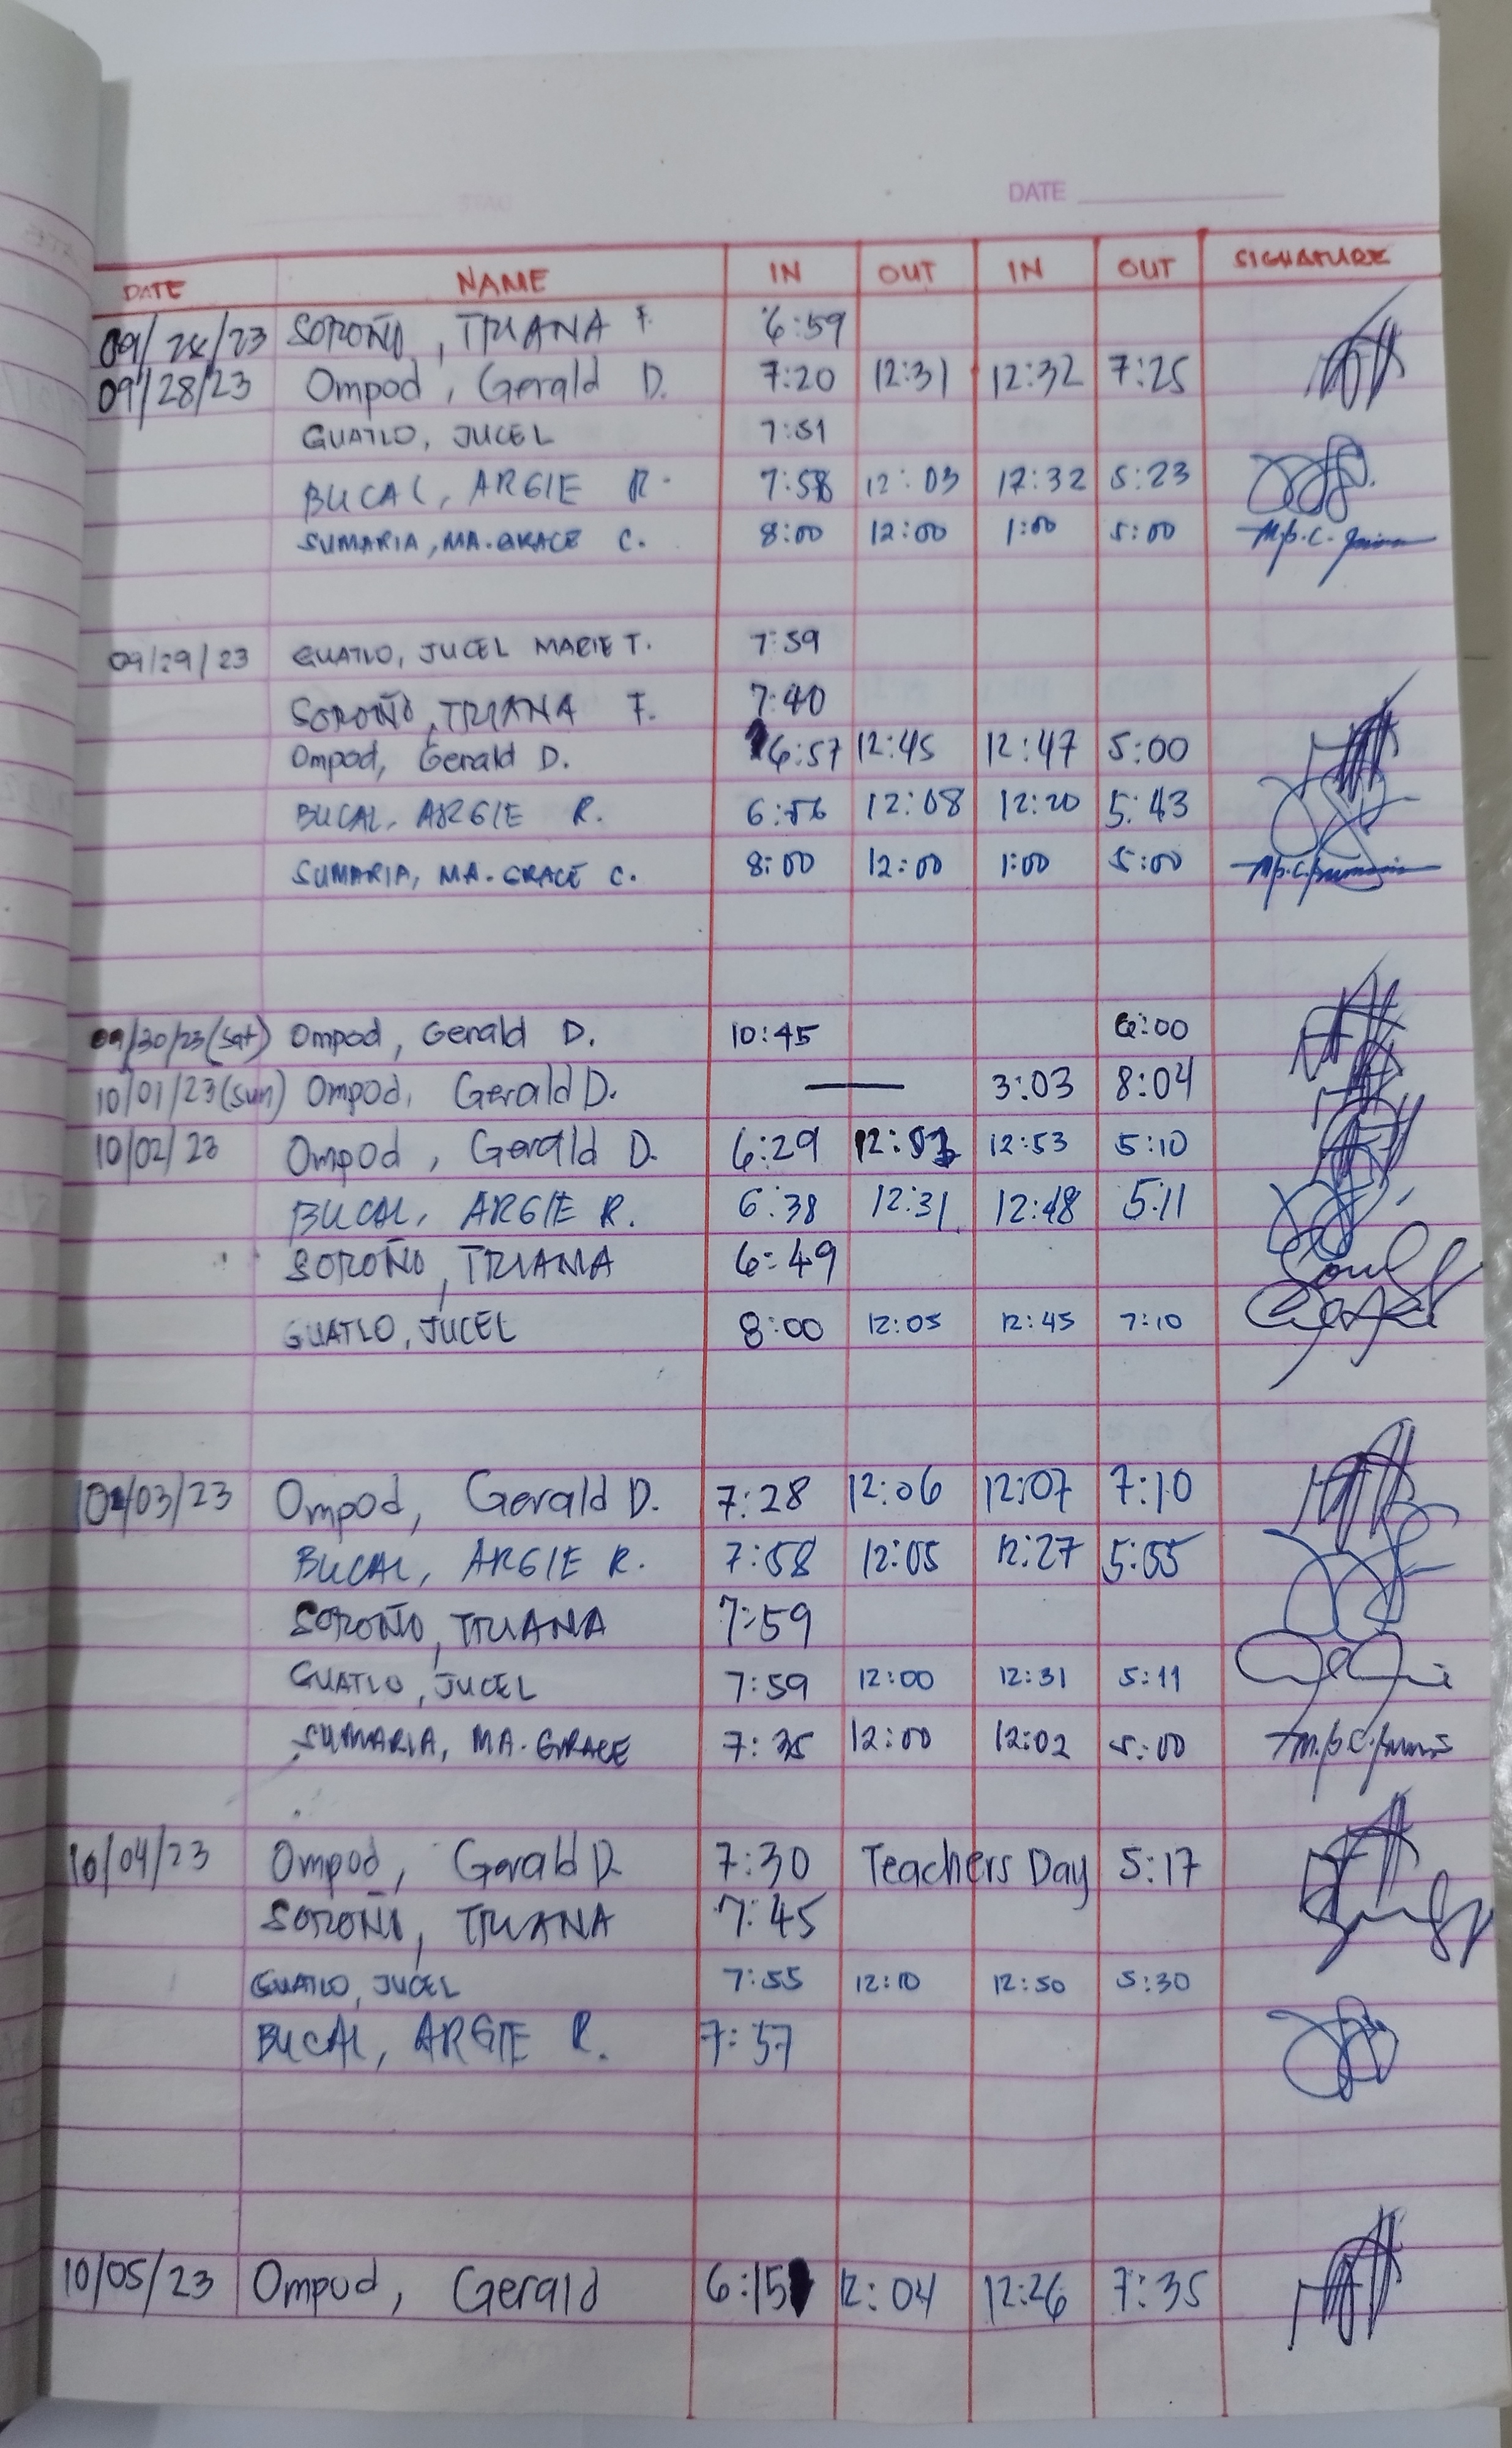 DATE
DATE NAME IN OUT IN OUT SIGNATURE
09/28/23 SOROÑO, TRIANA F. 6:59
09/28/23 Ompod, Gerald D. 7:20 12:31 12:32 7:25
GUATLO, JUCEL 7:51
BUCAL, ARGIE R. 7:58 12:03 12:32 5:23
SUMARIA, MA. GRACE C. 8:00 12:00 1:00 5:00
09/29/23 GUATLO, JUCEL MARIE T. 7:39
SOROÑO, TRIANA F. 7:40
Ompod, Gerald D. 6:57 12:45 12:47 5:00
BUCAL, ARGIE R. 6:56 12:08 12:20 5:43
SUMARIA, MA. GRACE C. 8:00 12:00 1:00 5:00
09/30/23 (Sat) Ompod, Gerald D. 10:45 6:00
10/01/23 (Sun) Ompod, Gerald D. — 3:03 8:04
10/02/23 Ompod, Gerald D. 6:29 12:53 5:10
BUCAL, ARGIE R. 6:38 12:31 12:48 5:11
SOROÑO, TRIANA 6:49
GUATLO, JUCEL 8:00 12:05 12:45 7:10
10/03/23 Ompod, Gerald D. 7:28 12:06 12:07 7:10
BUCAL, ARGIE R. 7:58 12:05 12:27 5:55
SOROÑO, TRIANA 7:59
GUATLO, JUCEL 7:59 12:00 12:31 5:11
SUMARIA, MA. GRACE 7:35 12:00 12:02 5:00
10/04/23 Ompod, Gerald D. 7:30 Teachers Day 5:17
SOROÑO, TRIANA 7:45
GUATLO, JUCEL 7:55 12:10 12:50 5:30
BUCAL, ARGIE R. 7:57
10/05/23 Ompod, Gerald 6:15 12:04 12:26 7:35